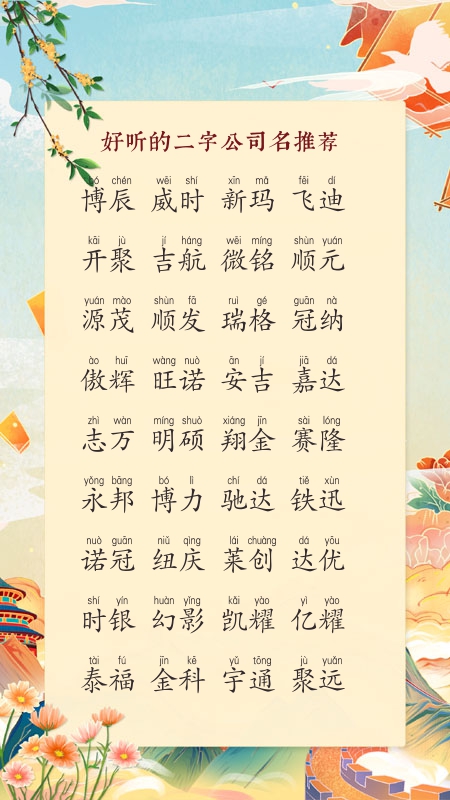 好听的二字公司名推荐
bó chén wēi shí xīn mǎ fēi dí
博辰 威时 新玛 飞迪
kāi jù jí háng wēi míng shùn yuán
开聚 吉航 微铭 顺元
yuán mào shùn fā ruì gé guān nà
源茂 顺发 瑞格 冠纳
ào huī wàng nuò ān jí jiā dá
傲辉 旺诺 安吉 嘉达
zhì wàn míng shuò xiáng jīn sài lóng
志万 明硕 翔金 赛隆
yǒng bāng bó lì chí dá tiě xùn
永邦 博力 驰达 铁迅
nuò guān niǔ qìng lái chuàng dá yōu
诺冠 纽庆 莱创 达优
shí yín huàn yǐng kǎi yào yì yào
时银 幻影 凯耀 亿耀
tài fú jīn kē yǔ tōng jù yuǎn
泰福 金科 宇通 聚远